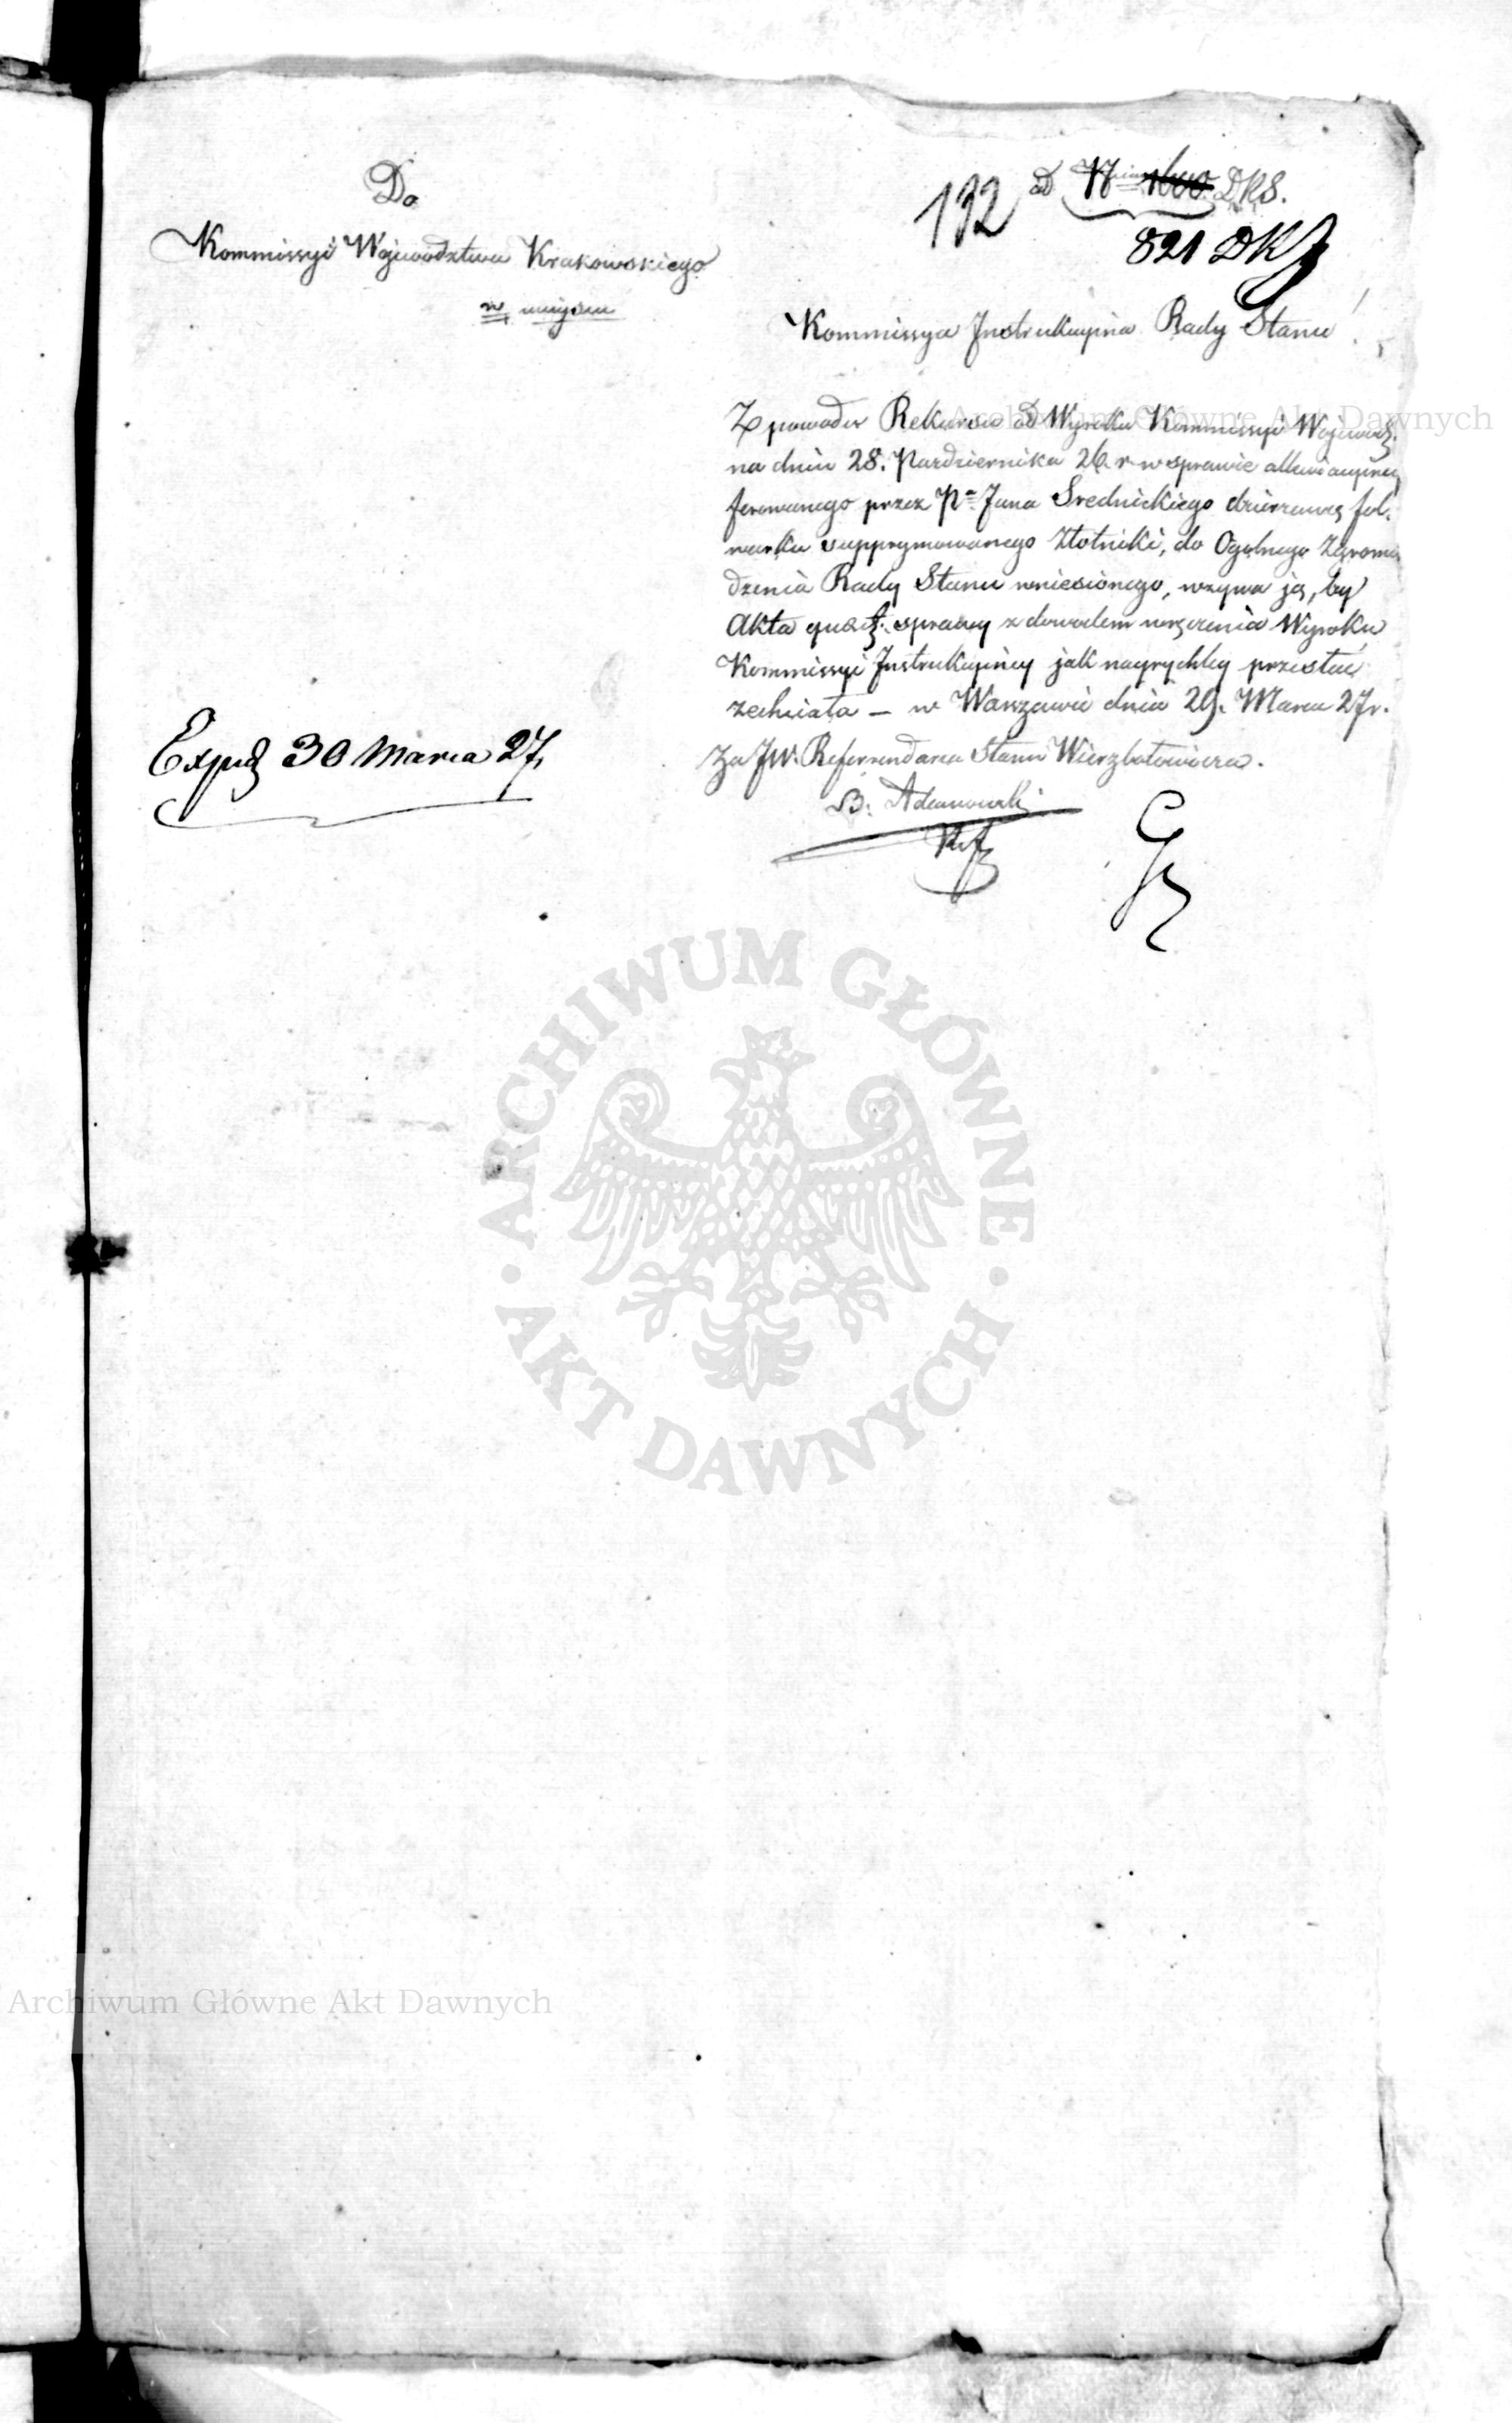 Do
Kommissyi Wojewodztwa Krakowskiego
w mieyscu
132 ad N 1600 DKS.
821 DKS
Kommissya Instrukcyina Rady Stanu
Z powodu Rekursu od Wyroku Kommissyi Wojewodz.
na dniu 28. Pazdziernika 26 r w sprawie
ferowanego przez Pa Jana Srednickiego dzierzawcę fol-
warku supprymowanego Złotniki, do Ogolnego Zgroma
dzenia Rady Stanu wniesionego, wzywa ją, by
Akta quaest. sprawy z dowodem wręczenia Wyroku
Kommissyi Instrukcyiney jak nayrychley przesłać
zechciała – w Warszawie dnia 29. Marca 27 r.
Za JW. Referendarza Stanu Wierzbołowicza.
B. Adamowski
Exped 30 Marca 27.
Archiwum Główne Akt Dawnych
ARCHIWUM GŁÓWNE
AKT DAWNYCH
Archiwum Główne Akt Dawnych